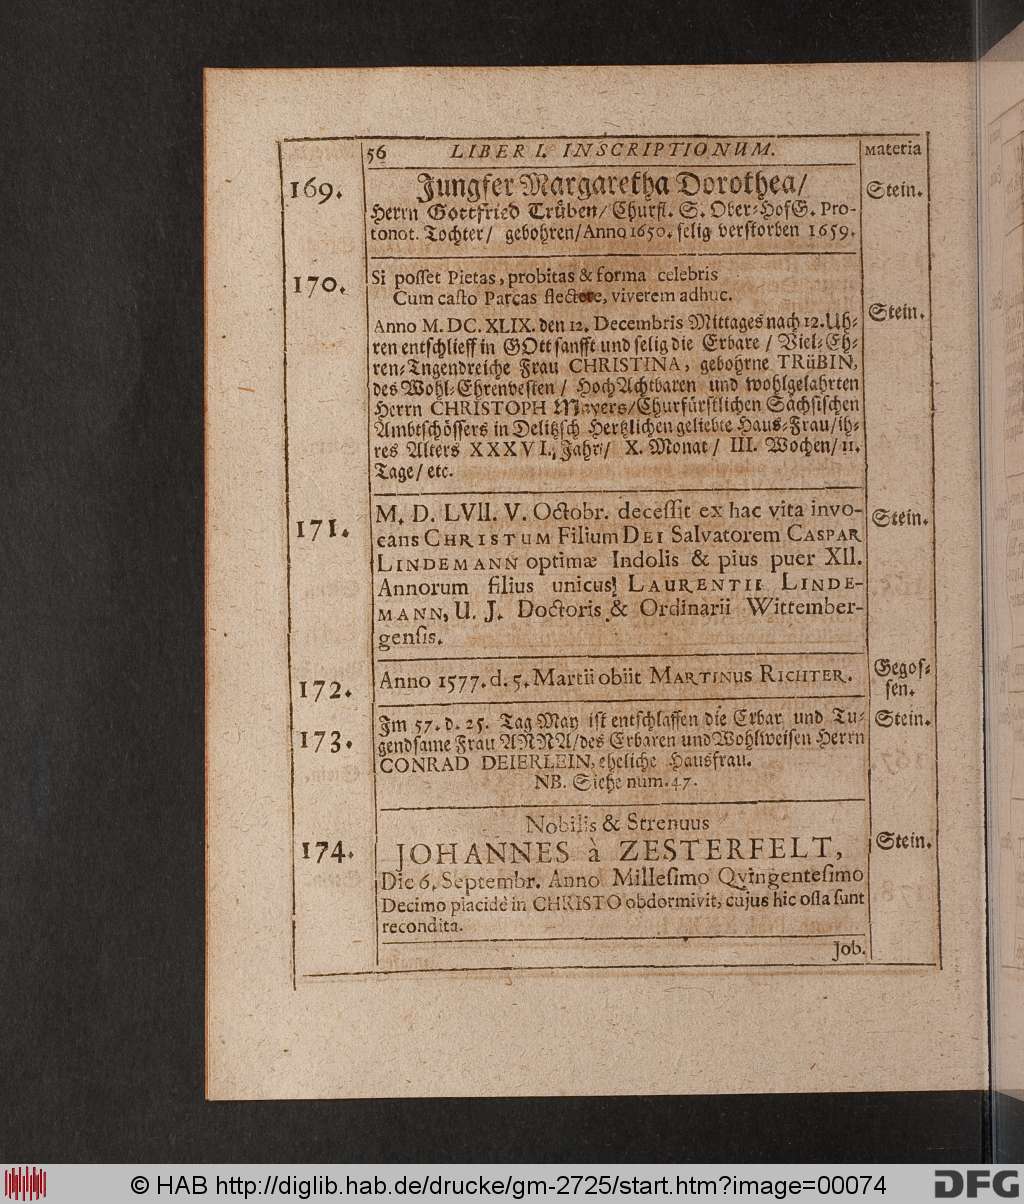 56 LIBER I. INSCRIPTIONUM. Materia
169. Jungfer Margaretha Dorothea/ Stein.
Herrn Gottfried Trüben/Churfl. S. Ober-HofG. Pro-
tonot. Tochter/ gebohren/Anno 1650. selig verstorben 1659.
170. Si posset Pietas, probitas & forma celebris
Cum casto Parcas flectere, viverem adhuc.
Stein.
Anno M. DC. XLIX. den 12. Decembris Mittages nach 12. Uh-
ren entschlieff in GOtt sansft und selig die Erbare / Viel-Eh-
ren-Tngendreiche Frau CHRISTINA, gebohrne TRüBIN,
des Wohl-Ehrenvesten / HochAchtbaren und wohlgelahrten
Herrn CHRISTOPH Mayers/Churfürstlichen Sächsischen
Ambtschössers in Delitzsch Hertzlichen geliebte Haus-Frau/ih-
res Alters XXXVI. Jahr/ X. Monat / III. Wochen/ 11.
Tage/ etc.
171. M. D. LVII. V. Octobr. decessit ex hac vita invo- Stein.
cans CHRISTUM Filium DEI Salvatorem CASPAR
LINDEMANN optimæ Indolis & pius puer XII.
Annorum filius unicus LAURENTII LINDE-
MANN, U. J. Doctoris & Ordinarii Wittember-
gensis.
172. Anno 1577. d. 5. Martii obiit MARTINUS RICHTER. Gegos-
sen.
173. Im 57. d. 25. Tag May ist entschlaffen die Erbar und Tu- Stein.
gendsame Frau ANNA/des Erbaren und Wohlweisen Herrn
CONRAD DEIERLEIN, eheliche Hausfrau.
NB. Siehe num. 47.
Nobilis & Strenuus
174. JOHANNES à ZESTERFELT, Stein.
Die 6. Septembr. Anno Millesimo Qvingentesimo
Decimo placidè in CHRISTO obdormivit, cujus hic ossa sunt
recondita.
Joh.
© HAB http://diglib.hab.de/drucke/gm-2725/start.htm?image=00074 DFG